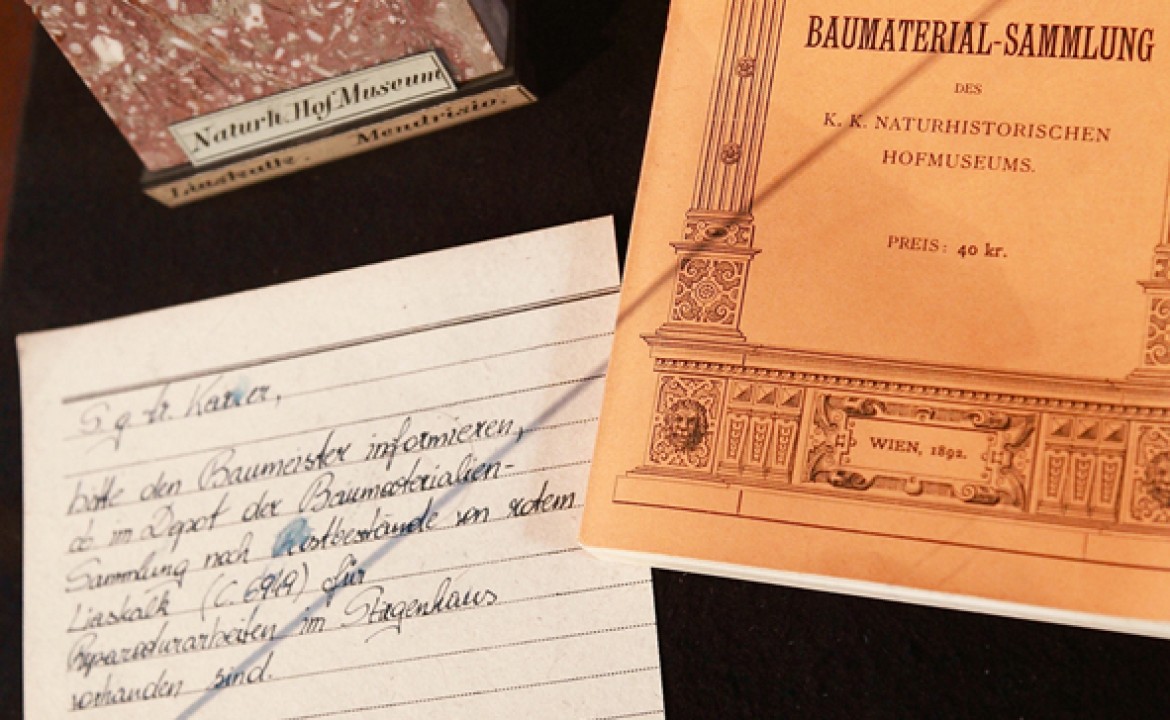 Naturh HofMuseum
Liaskalk. Mendrisio.
BAUMATERIAL-SAMMLUNG
DES
K. K. NATURHISTORISCHEN
HOFMUSEUMS.
PREIS: 40 kr.
WIEN, 1892.
S. g. Hr. Karrer,
bitte den Baumeister informieren,
ob im Depot der Baumaterialien-
Sammlung noch Restbestände von rotem
Liaskalk (C. 6949) für
Reparaturarbeiten im Stiegenhaus
vorhanden sind.